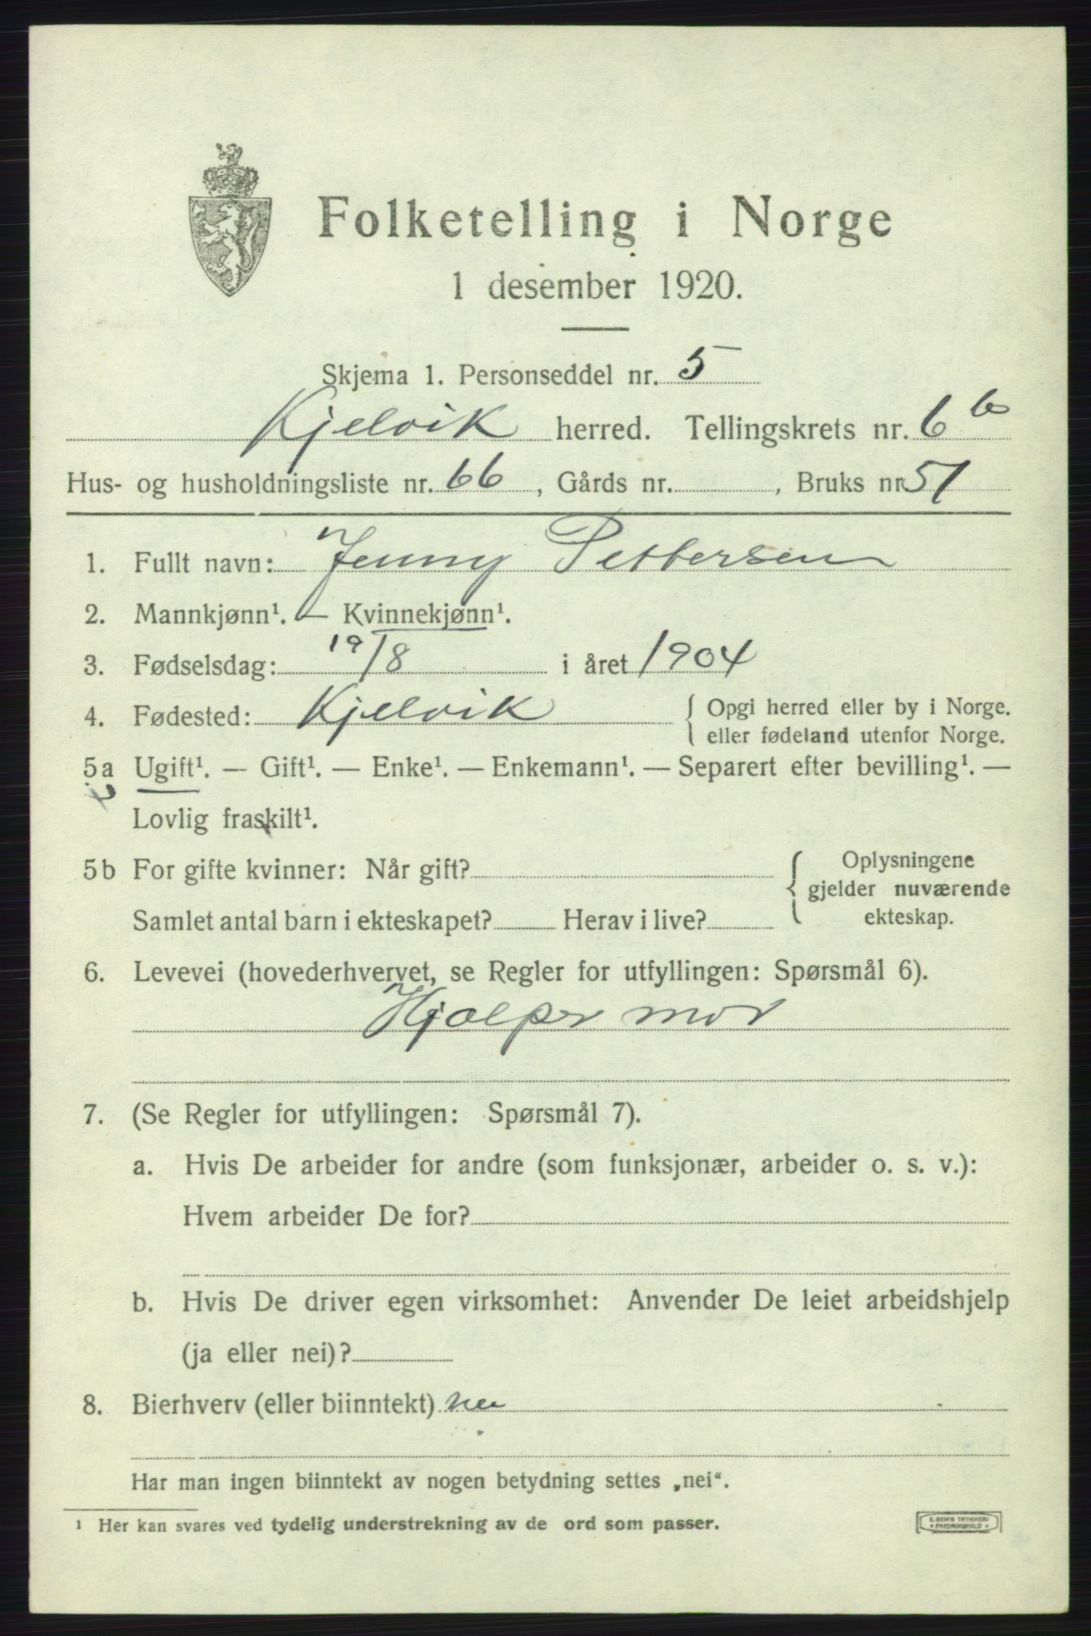 Folketelling i Norge
1 desember 1920.
Skjema 1. Personseddel nr. 5
Kjelvik herred. Tellingskrets nr. 6 b
Hus- og husholdningsliste nr. 66, Gårds nr. , Bruks nr. 51
1. Fullt navn: Jenny Pettersen
2. Mannkjønn¹. — Kvinnekjønn¹.
3. Fødselsdag: 19/8 i året 1904
4. Fødested: Kjelvik { Opgi herred eller by i Norge.
eller fødeland utenfor Norge.
5a Ugift¹. — Gift¹. — Enke¹. — Enkemann¹. — Separert efter bevilling¹. —
Lovlig fraskilt¹.
5b For gifte kvinner: Når gift? { Oplysningene
gjelder nuværende
Samlet antal barn i ekteskapet? Herav i live? ekteskap.
6. Levevei (hovederhvervet, se Regler for utfyllingen: Spørsmål 6).
Hjælper mor
7. (Se Regler for utfyllingen: Spørsmål 7).
a. Hvis De arbeider for andre (som funksjonær, arbeider o. s. v.):
Hvem arbeider De for?
b. Hvis De driver egen virksomhet: Anvender De leiet arbeidshjelp
(ja eller nei)?
8. Bierhverv (eller biinntekt) nei
Har man ingen biinntekt av nogen betydning settes „nei“.
¹ Her kan svares ved tydelig understrekning av de ord som passer.